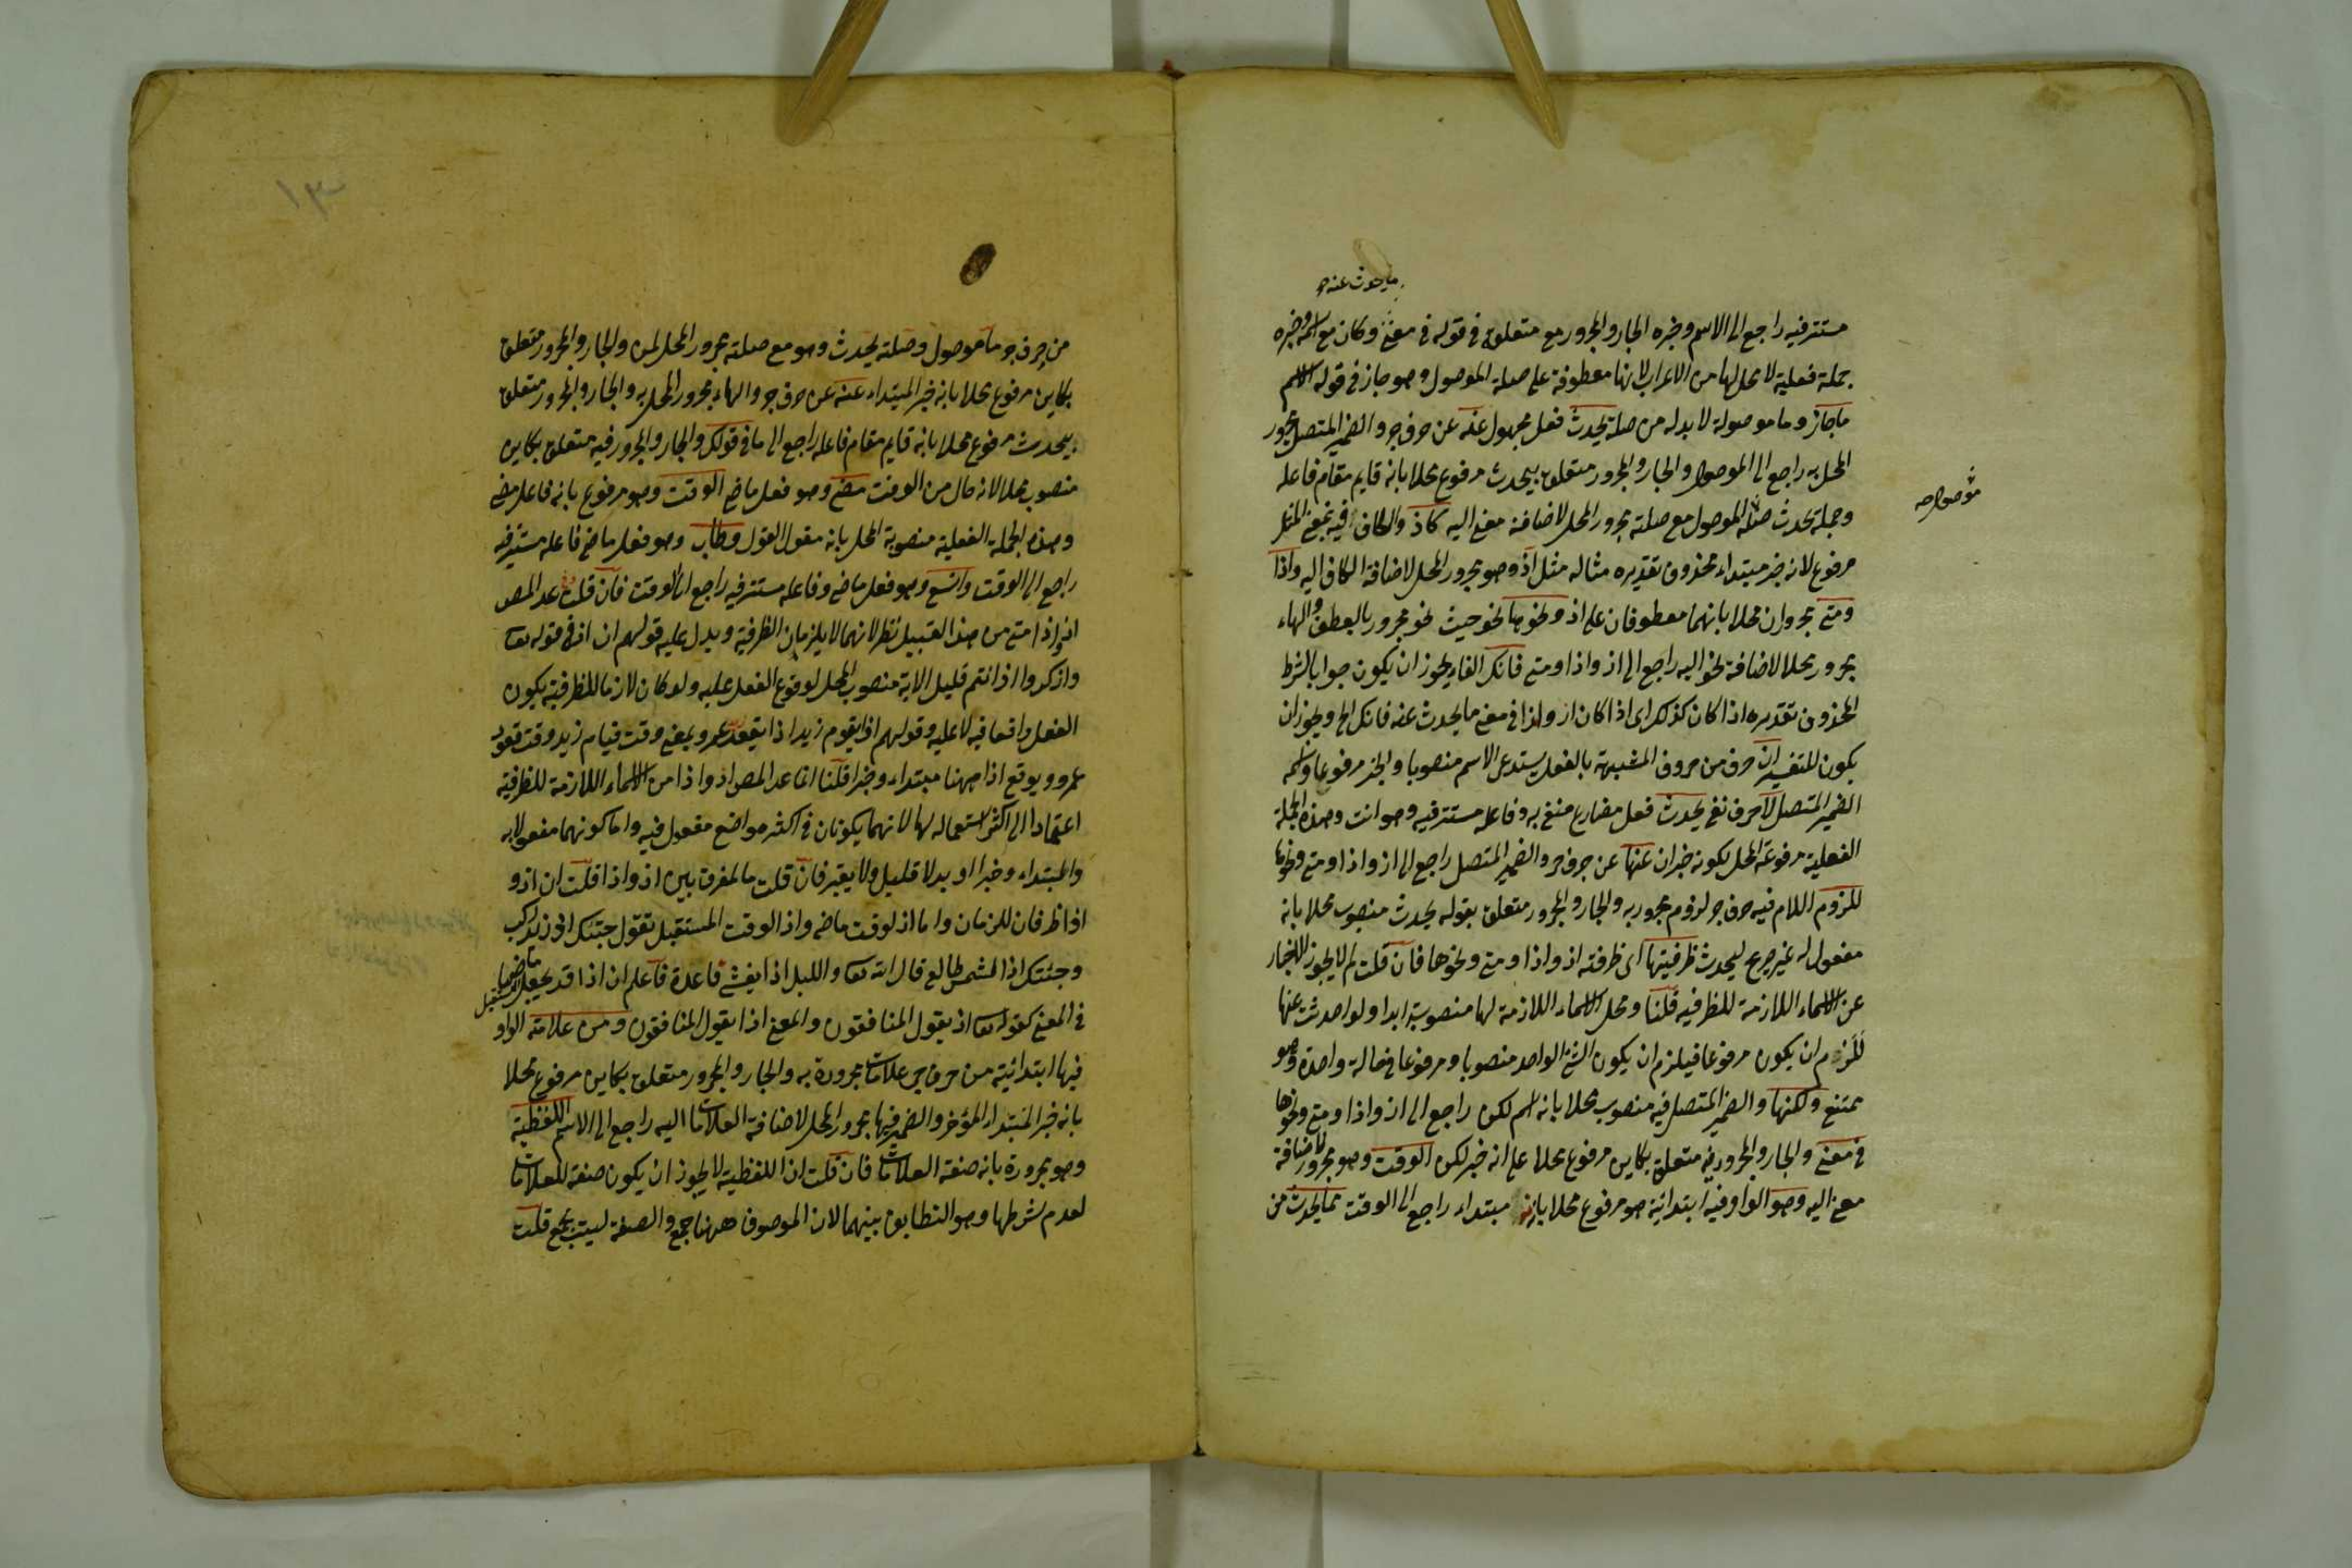 ما يحدث عنه
مستتر فيه راجع الى الاسم وخبره الجار والمجرور مع متعلق في قوله في معنى وكان مع اسمه وخبره
جملة فعلية لا محل لها من الاعراب لانها معطوفة على صلة الموصول وهو جاز في قوله الاسم
ما جاز وما موصولة لا بد له من صلة يحدث فعل مجهول عنه عن حرف جر والضمير المتصل مجرور
المحل به راجع الى الموصول والجار والمجرور متعلق بيحدث مرفوع محلا بانه قايم مقام فاعله
وجملة يحدث صلة الموصول مع صلته مجرور المحل لاضافة معنى اليه كاذ والكاف فيه بمعنى المثل
موصول صه
مرفوع لانه خبر مبتداء محذوف تقديره مثاله مثل اذ وهو مجرور المحل لاضافة الكاف اليه واذا
ومتى مجروران محلا بانهما معطوفان على اذ ونحوها نحو حيث نحو مجرور بالعطف والهاء
مجرور محلا لاضافة نحو اليه راجع الى اذ واذا ومتى فانك الفاء يجوز ان يكون جوابا لشرط
المحذوف تقديره اذا كان كذلك اى اذا كان اذ واذا في معنى ما يحدث عنه فانك الخ ويجوز ان
يكون للتفسير ان حرف من حروف المشبهة بالفعل يستدعى الاسم منصوبا والخبر مرفوعا واسمه
الضمير المتصل لا حرف نفى يحدث فعل مضارع منفى به وفاعله مستتر فيه وهو انت وهذه الجملة
الفعلية مرفوعة المحل بكونه خبر ان عنها عن حرف جر والضمير المتصل راجع الى اذ واذا ومتى ونحوها
للزوم اللام فيه حرف جر لزوم مجرور به والجار والمجرور متعلق بقوله يحدث منصوب محلا بانه
مفعول له غير صريح ليحدث ظرفيتها اى ظرفته اذ واذا ومتى ونحوها فان قلت لم لا يجوز الاخبار
عن الاسماء اللازمة للظرفيه قلنا ومحل الاسماء اللازمة لها منصوبة ابدا ولو احدث عنها
للزم ان يكون مرفوعا فيلزم ان يكون الشئ الواحد منصوبا ومرفوعا في حالة واحدة وهو
ممتنع ولكنها والضمير المتصل فيه منصوب محلا بانه اسم لكن راجع الى اذ واذا ومتى ونحوها
في معنى والجار والمجرور فيه متعلق بكاين مرفوع محلا على انه خبر لكن الوقت وهو مجرور لاضافة
معنى اليه وهو الواو فيه ابتدائية هو مرفوع محلا بانه مبتداء راجع الى الوقت مما يحدث من
١٣
من حرف جر ما موصول وصلته يحدث وهو مع صلته مجرور المحل لمن والجار والمجرور متعلق
بكاين مرفوع محلا بانه خبر المبتداء عنه عن حرف جر والهاء مجرور المحل به والجار والمجرور متعلق
بيحدث مرفوع محلا بانه قايم مقام فاعله راجع الى ما في قولك والجار والمجرور فيه متعلق بكاين
منصوب محلا لانه حال من الوقت مضى وهو فعل ماضى الوقت وهو مرفوع بانه فاعل مضى
وهذه الجملة الفعلية منصوبة المحل بانه مقول القول وطاب وهو فعل ماضى فاعله مستتر فيه
راجع الى الوقت واتسع وهو فعل ماضى وفاعله مستتر فيه راجع الى الوقت فان قلت عد المص
اذ واذا متى من هذا القبيل نظر لانهما لا يلزمان الظرفية ويدل عليه قولهم ان اذ في قوله تعا
واذكروا اذ انتم قليل الاية منصوب المحل لوقوع الفعل عليه ولو كان لازما للظرفية يكون
الفعل واقعا فيه لا عليه وقولهم اذا يقوم زيد اذا يقعد عمرو بمعنى وقت قيام زيد وقت قعود
عمرو ويوقع اذا ههنا مبتداء وخبرا قلنا انما عد المص اذ واذا من الاسماء اللازمة للظرفية
اعتمادا الى اكثر استعماله لها لانهما يكونان في اكثر مواضع مفعول فيه واما كونهما مفعولا به
والمبتداء وخبرا او بدلا قليل ولا يعتبر فان قلت ما لمفرق بين اذ واذا قلت ان اذ و
اذا ظرفان للزمان واما اذ لوقت ماضى واذ الوقت المستقبل تقول جئتك اذ زيد راكب
وجئتك اذا الشمس طالع قال الله تعا والليل اذا يغشى قاعدة فاعلم ان اذا قد يجعل ماضيا مستقبل
في المعنى كقوله تعا اذ يقول المنافقون والمعنى اذا يقول المنافقون ومن علامته الواو
فيها ابتدائية من حرف جر علامات مجرورة به والجار والمجرور متعلق بكاين مرفوع محلا
بانه خبر المبتداء المؤخر والضمير فيها مجرور المحل لاضافة العلامات اليه راجع الى الاسم اللفظية
وهو مجرورة بانه صفة العلامات فان قلت ان اللفظية لا يجوز ان يكون صفة للعلامات
لعدم شرطها وهو التطابق بينهما لان الموصوف ههنا جمع والصفة ليست بجمع قلت